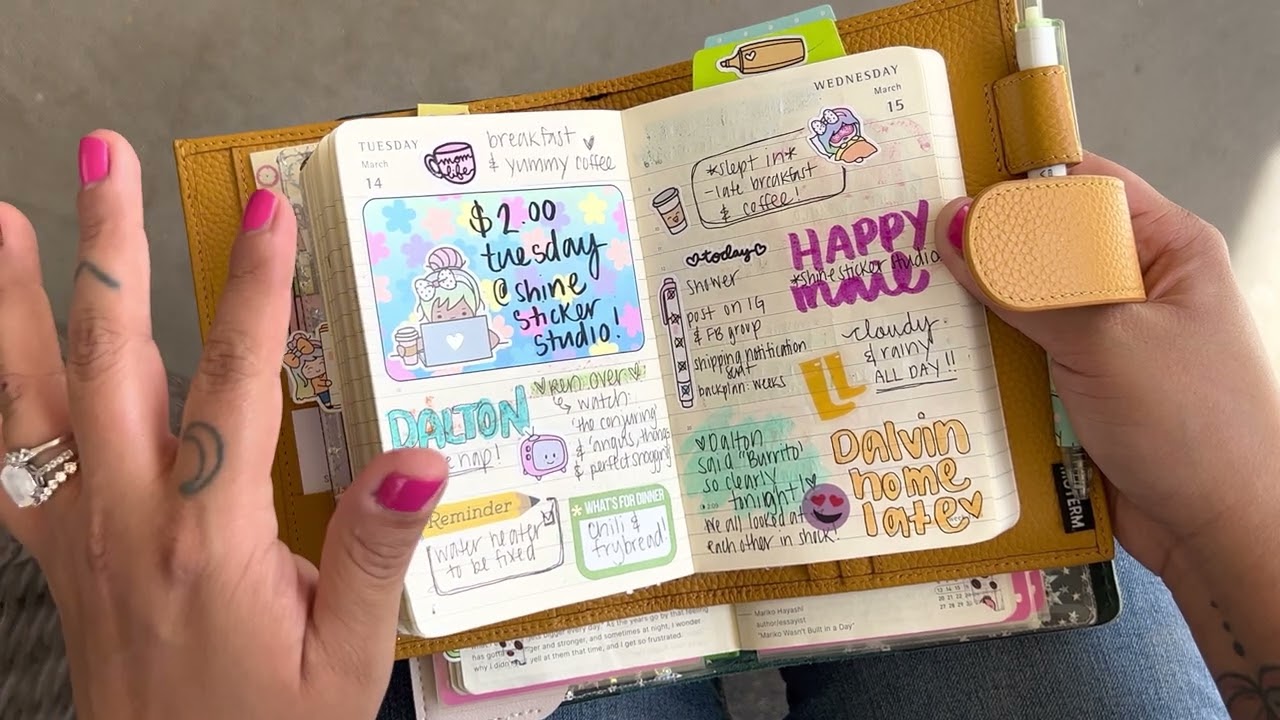 TUESDAY
March
14
mom
life
breakfast
& yummy coffee
$2.00
tuesday
@ shine
sticker
studio!
DALTON
nap!
Ren over
watch:
'the conjuring'
& 'angus, thongs
& perfect snogging
Reminder
water heater
to be fixed
WHAT'S FOR DINNER
chili &
frybread!
WEDNESDAY
March
15
*slept in*
-late breakfast
& coffee!
today
shower
post on IG
& FB group
shipping notification
backplan: weeks
HAPPY
*shine sticker studio
mail
cloudy
& rainy
ALL DAY!!
Dalton
said 'Burrito'
so clearly
tonight!
We all looked at
each other in shock!
Dalvin
home
late
bigger every day. As the years go by that feeling
has gotten stronger and stronger, and sometimes at night, I wonder
why I didn't yell at them that time, and I get so frustrated.
Mariko Hayashi
author/essayist
"Mariko Wasn't Built in a Day"